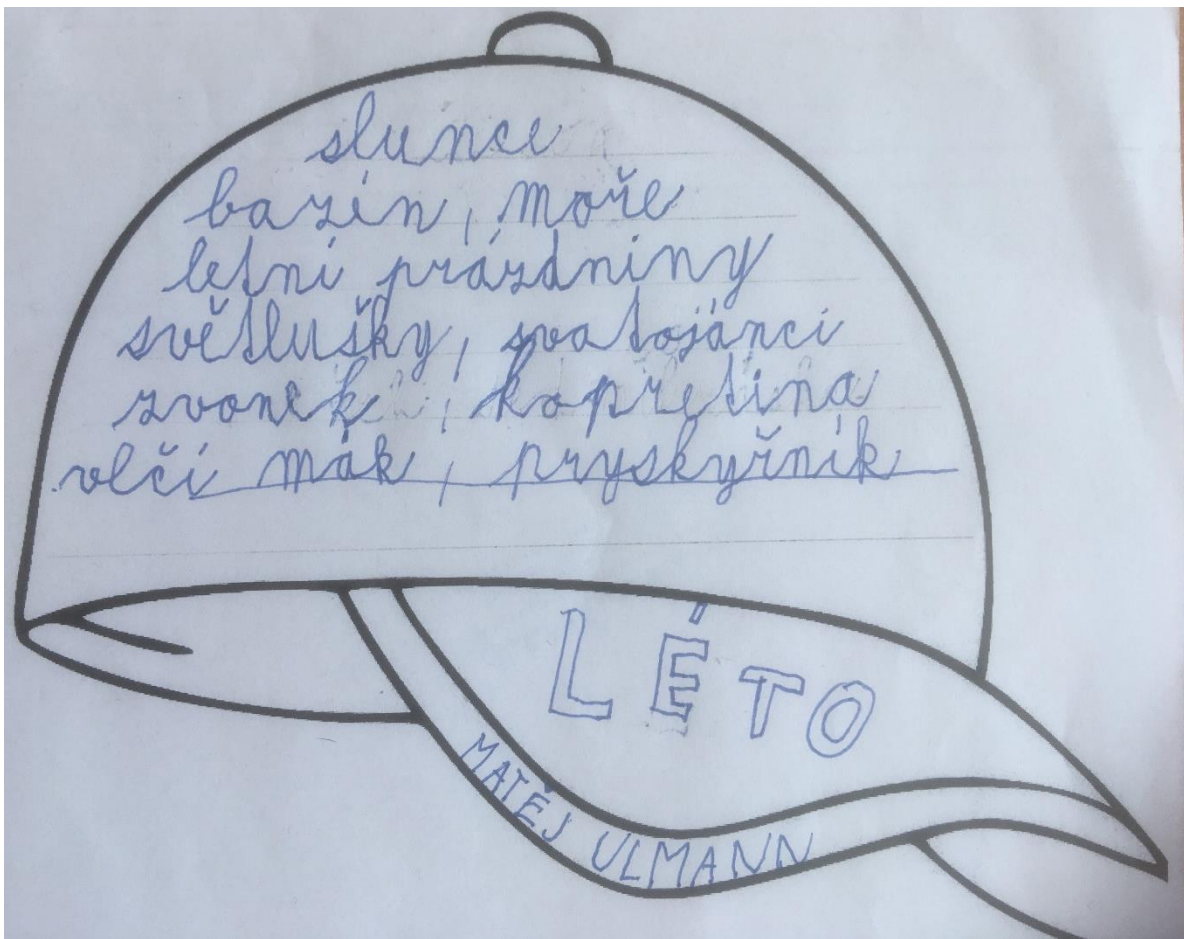 slunce
bazén, moře
letní prázdniny
světlušky, svatojánci
zvonek, kopretina
vlčí mák, pryskyřník
LÉTO
MATĚJ ULMANN